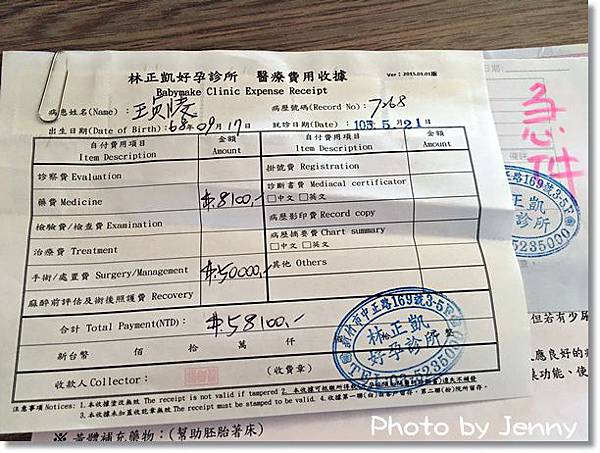 林正凱好孕診所 醫療費用收據
Ver：2015.01.01版
Babymake Clinic Expense Receipt
病患姓名(Name)： 病歷號(Record No)：7268
出生日期(Date of Birth)：68年09月17日 就診日期(Date)：105.5.21日
自付費用項目 Item Description 金額 Amount 自付費用項目 Item Description 金額 Amount
診察費 Evaluation 掛號費 Registration
藥費 Medicine $8100,- 診斷書費 Mediacal certificator □中文 □英文
檢驗費/檢查費 Examination 病歷影印費 Record copy
治療費 Treatment 病歷摘要費 Chart summary □中文 □英文
手術/處置費 Surgery/Management $50000,- 其他 Others
麻醉前評估及術後照護費 Recovery
合計 Total Payment(NTD)： $58100,-
新台幣 佰 拾 萬 仟
收款人 Collector： (收費章)
注意事項 Notices：1.本收據塗改無效 The receipt is not valid if tampered
3.本收據未加蓋收訖章無效 The receipt must be stamped to be valid.
新竹市中正路169號3-5F
林正凱
好孕診所
TEL:035235000
急件
備註
正路169號3-5F
正凱
孕診所
5235000
但若有少
應良好的
功能、使
※ 黃體補充藥物：(幫助胚胎著床)
Photo by Jenny